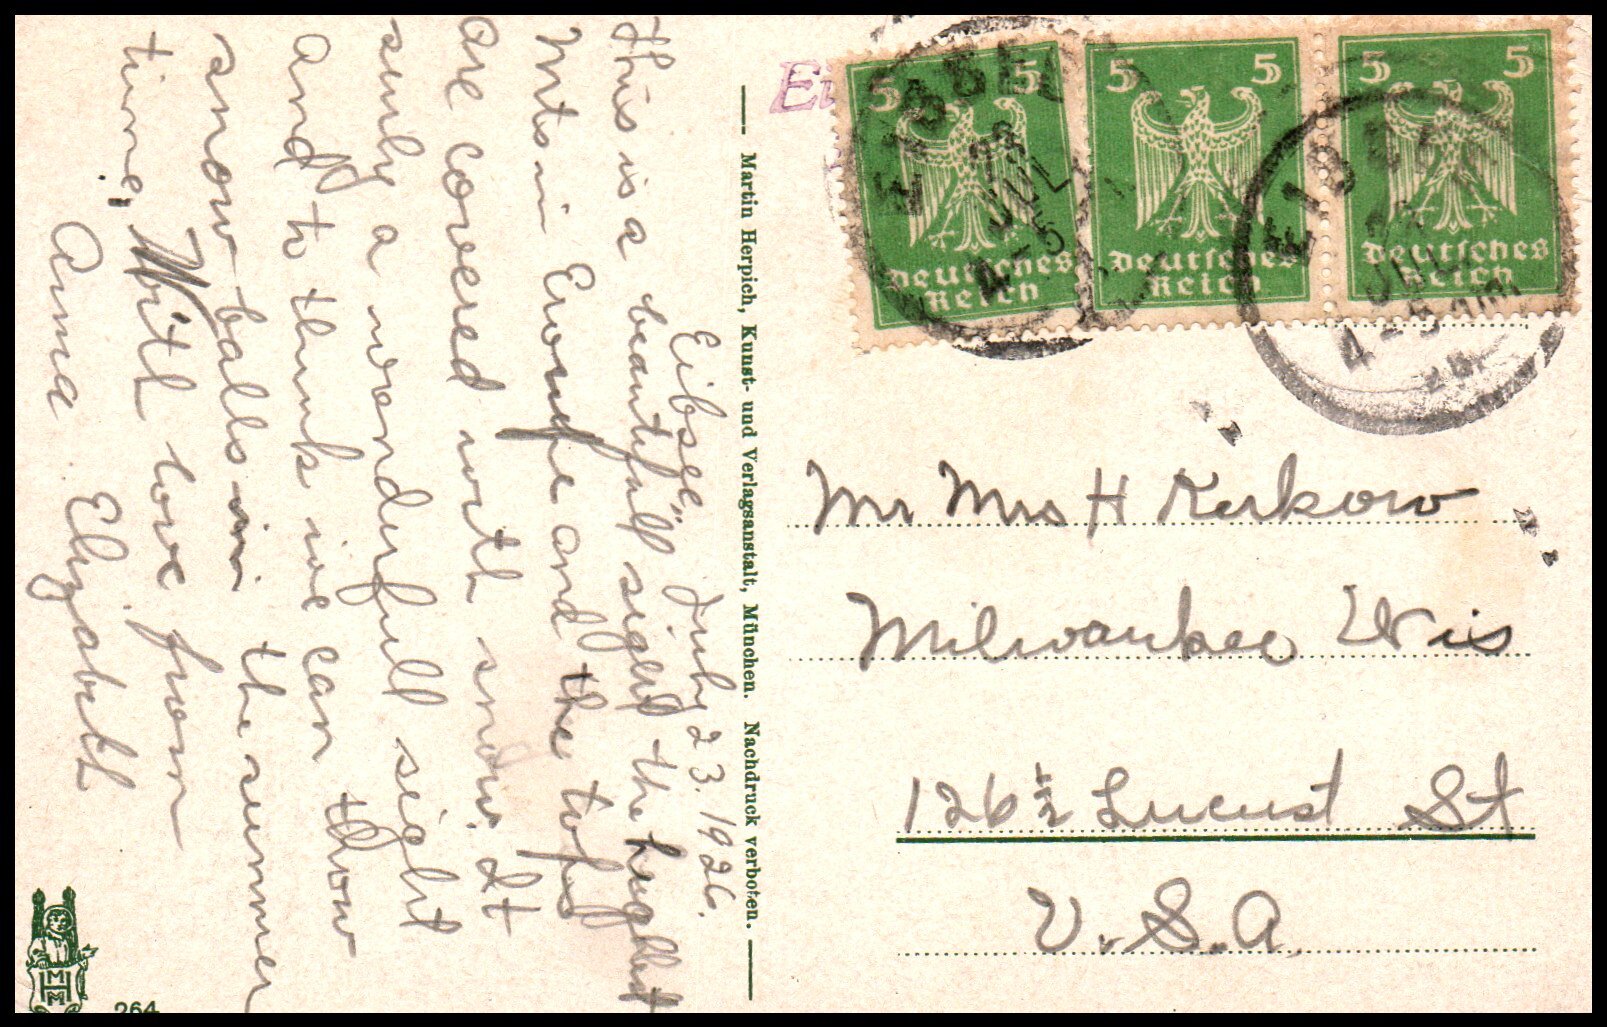 Eibsee, July 23. 1926.
This is a beautifull sight the highest
Mts in Europe and the tops
are covered with snow. It
surly a wonderfull sight
and to think we can throw
snow balls in the summer
time. With love from
Anna Elizabeth
Martin Herpich, Kunst- und Verlagsanstalt, München. Nachdruck verboten.
264
MHM
5 5
Deutsches
Reich
5 5
Deutsches
Reich
5 5
Deutsches
Reich
EIBSEE
JUL
4-5
EIBSEE
JUL
4-5
Mr Mrs H Kerkow
Milwaukee Wis
126 1/2 Lucust St
U.S.A.